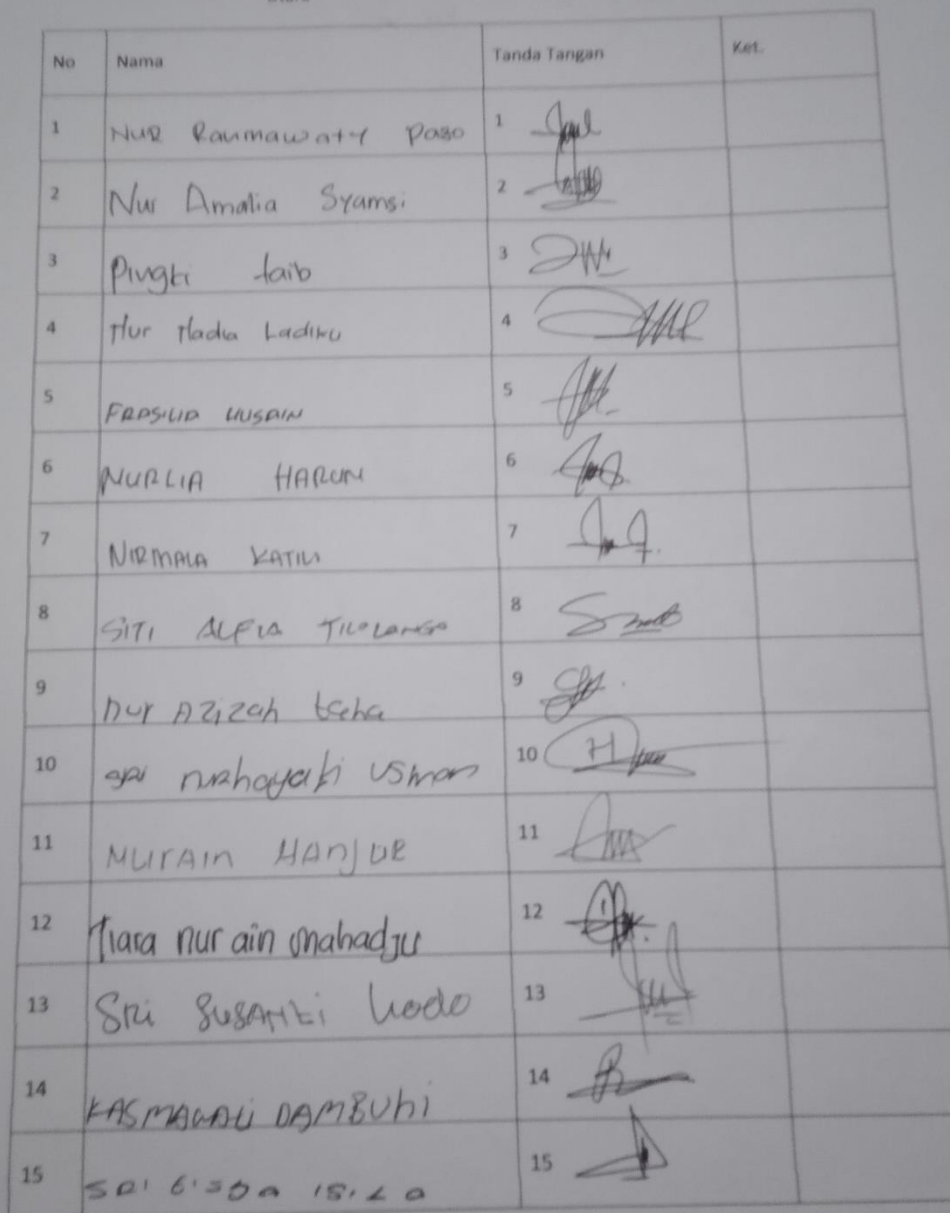 No Nama Tanda Tangan Ket.
1 NUR Raumawaty Paso 1
2 Nur Amalia Syamsi 2
3 Pingki taib 3
4 Nur Nadia Ladiku 4
5 FRASILIA HUSAIN 5
6 NURLIA HARUN 6
7 NIRMALA KATILI 7
8 SITI ALFIA TILOLANGO 8
9 nur Azizah taha 9
10 sri nurhayati Usman 10
11 NURAIN 11
12 Tiara nur ain mahadju 12
13 Sri SUSANti 13
14 KASMAWATI DAMBUhi 14
15 SRI 15